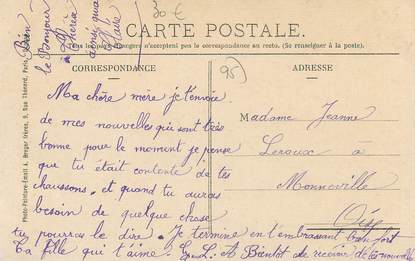 Bien
le Bonjour
à Chéria
ainsi qu'a
Claire
30 €
CARTE POSTALE.
Tous les pays étrangers n'acceptent pas la correspondance au recto. (Se renseigner à la poste).
CORRESPONDANCE
ADRESSE
95
Photo-Peinture-Émail A. Breger Frères, 9, Rue Thénard, Paris.
Ma chère mère je t'envoie
de mes nouvelles qui sont très
bonne pour le moment je pense
que tu était contente de tes
chaussons. et quand tu auras
besoin de quelque chose
tu pourras le dire. Je termine en t'embrassant bien fort
Ta fille qui t'aime. G. L. A Bientôt de recevoir de tes nouvelles
Madame Jeanne
Leroux à
Monneville
Oise